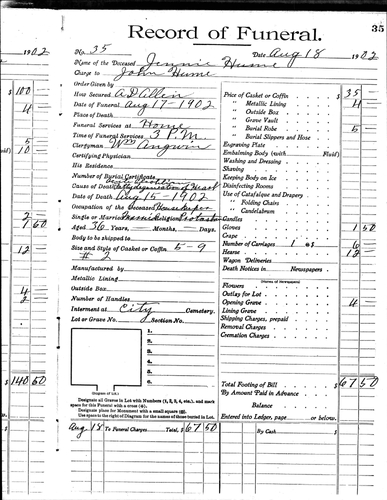 35
Record of Funeral.
1902
No. 35
Date Aug 18 1902
Name of the Deceased Jennie Hume
Charge to John Hume
Order Given by
How Secured A D Allen
Date of Funeral Aug 17-1902
Place of Death
Funeral Services at Home
Time of Funeral Services 3 P.M.
Clergyman Wm Angwin
Certifying Physician
His Residence
Number of Burial Certificate
Cause of Death Fatty degeneration of Heart
Date of Death Aug 15-1902
Occupation of the Deceased Housekeeper
Single or Married Married Religion
Aged 36 Years, Months, Days.
Body to be shipped to
Size and Style of Casket or Coffin 5-9
# 2
Manufactured by
Metallic Lining
Outside Box
Number of Handles
Interment at City Cemetery.
Lot or Grave No. Section No.
1.
2.
3.
4.
5.
6.
(Diagram of Lot.)
Designate all Graves in Lot with Numbers (1, 2, 3, 4, etc.), and mark
space for this Funeral with a cross (x).
Designate place for Monument with a small square (□).
Use space to the right of Diagram for the names of those buried in Lot.
Aug 18 To Funeral Charges Total, $ 67 50
Price of Casket or Coffin $ 35
" Metallic Lining 4
" Outside Box
" Grave Vault
" Burial Robe 5
" Burial Slippers and Hose
Engraving Plate
Embalming Body (with Fluid)
Washing and Dressing
Shaving
Keeping Body on Ice
Disinfecting Rooms
Use of Catafalque and Drapery
" Folding Chairs
" Candelabrum
Candles
Gloves 1 50
Crape
Number of Carriages 1 @ $ 6
Hearse 12
Wagon Deliveries
Death Notices in Newspapers
(Names of Newspapers)
Flowers
Outlay for Lot
Opening Grave 4
Lining Grave
Shipping Charges, prepaid
Removal Charges
Cremation Charges
Total Footing of Bill $ 67 50
By Amount Paid in Advance
Balance
Entered into Ledger, page or below.
By Cash $
$ 100
4
5
10
2
7 50
12
4
2
$ 140 50